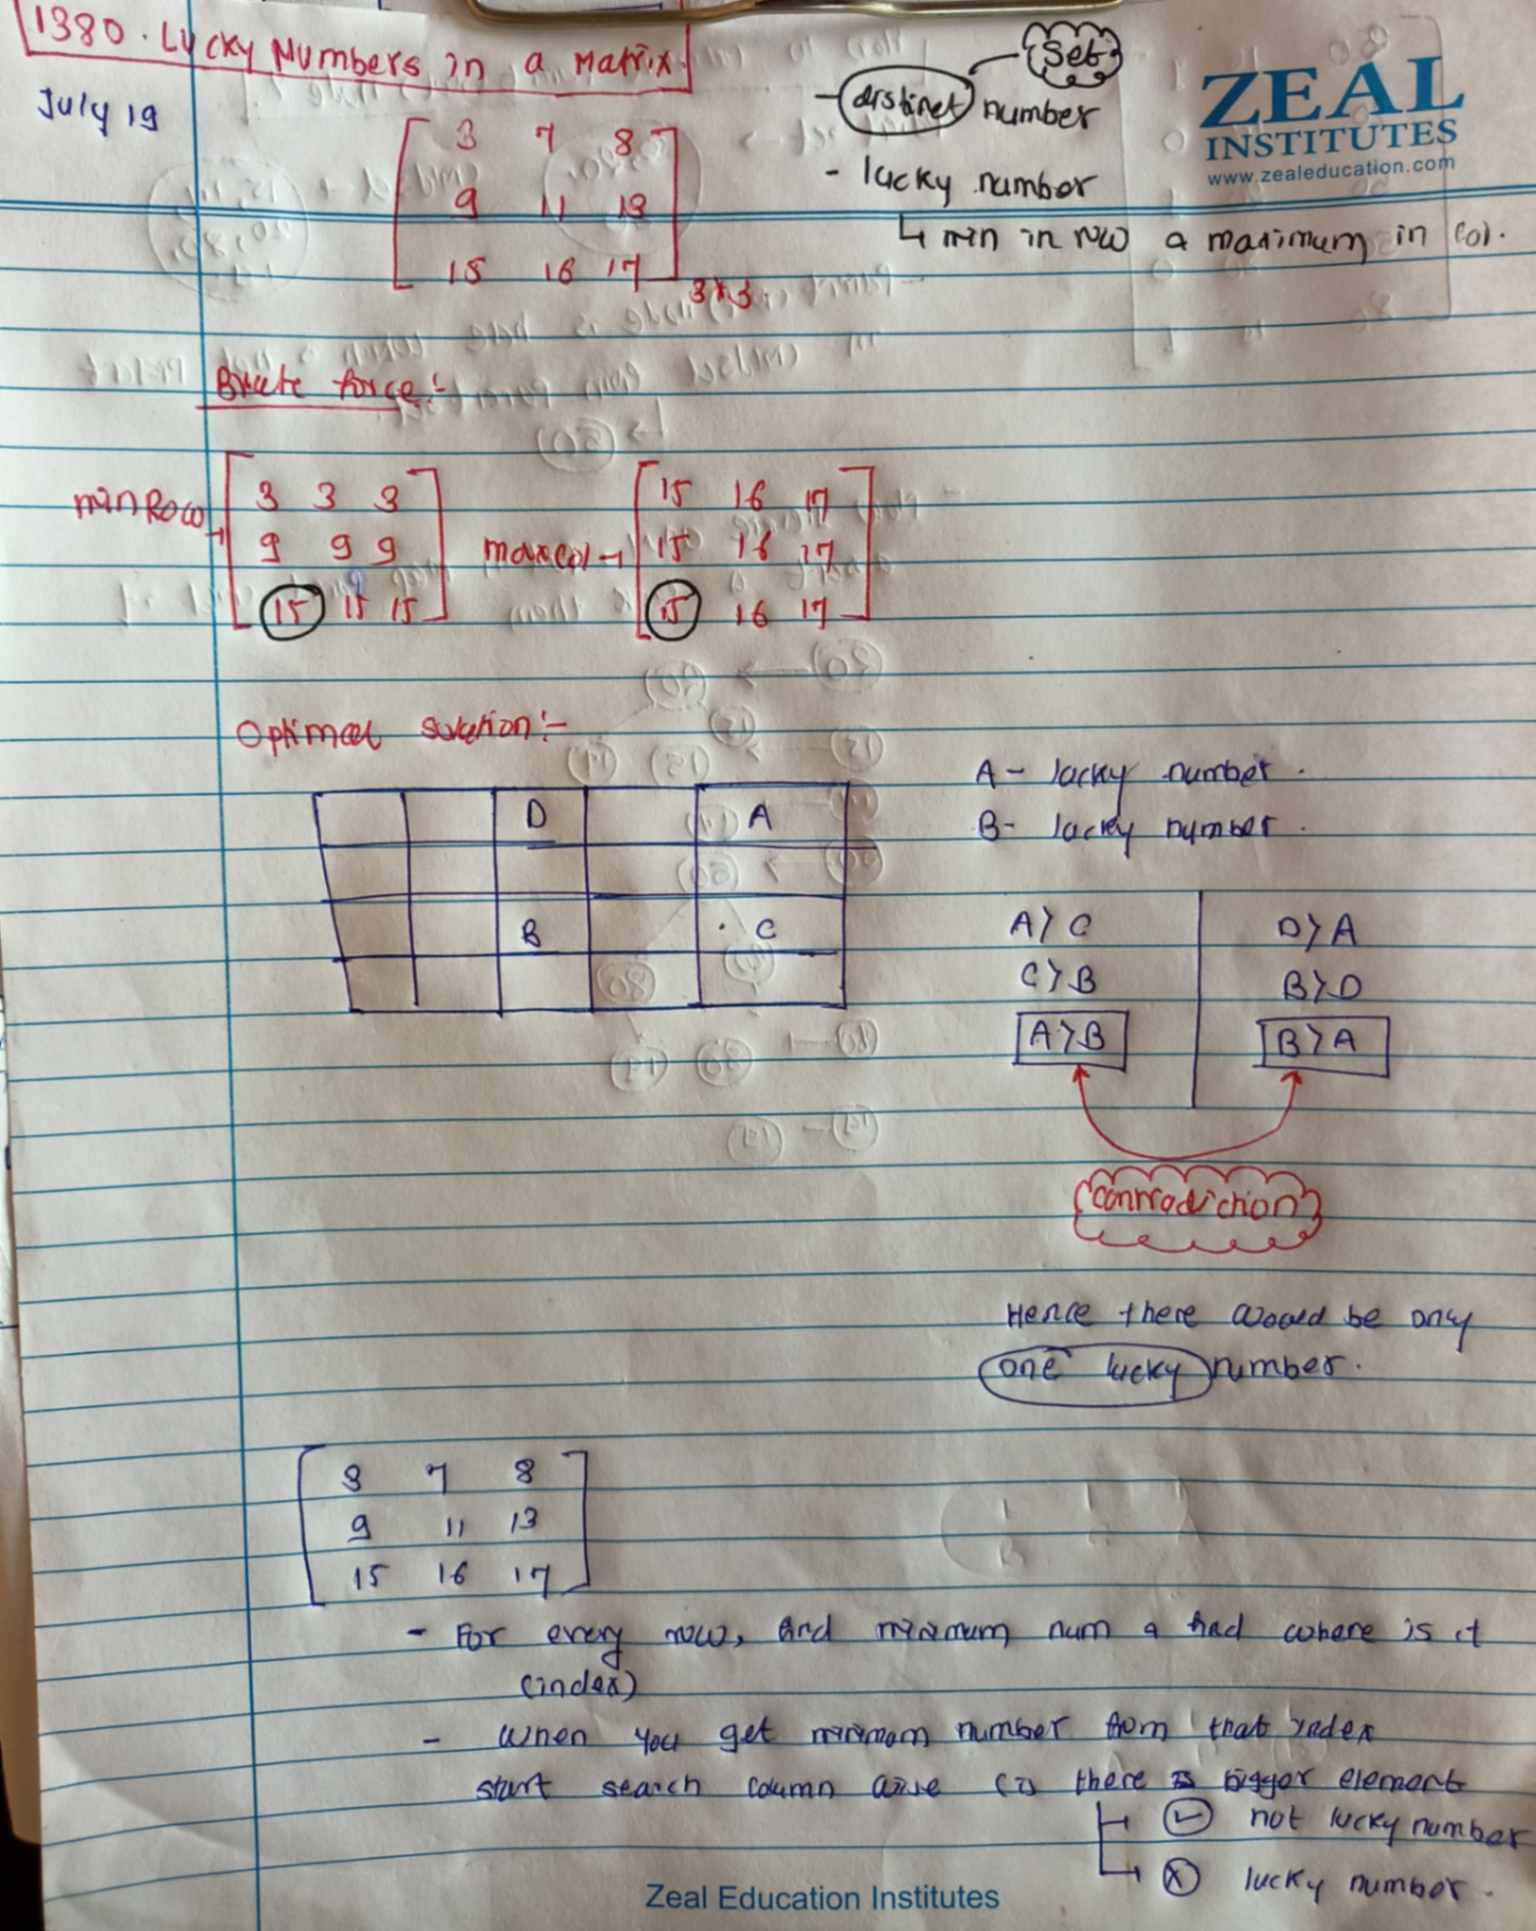 1380. Lucky Numbers in a Matrix.
July 19
Set
- distinct number
- lucky number
↳ min in row & maximum in col.
ZEAL
INSTITUTES
www.zealeducation.com
3 7 8
9 11 13
15 16 17
3*3
Brute force:-
minRow →
3 3 3
9 9 9
15 15 15
maxcol →
15 16 17
15 16 17
15 16 17
Optimal solution:-
D A
B . C
A - lucky number.
B - lucky number.
A > C
C > B
A > B
D > A
B > D
B > A
contradiction
Hence there would be only
one lucky number.
3 7 8
9 11 13
15 16 17
- For every row, find minimum num & find where is it
(index)
- When you get minimum number from that index
start search column wise (is there is bigger element
↳ ✓ not lucky number
↳ x lucky number.
Zeal Education Institutes